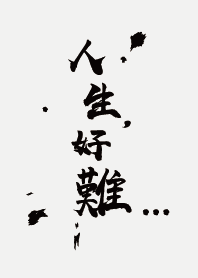 人生,好難...